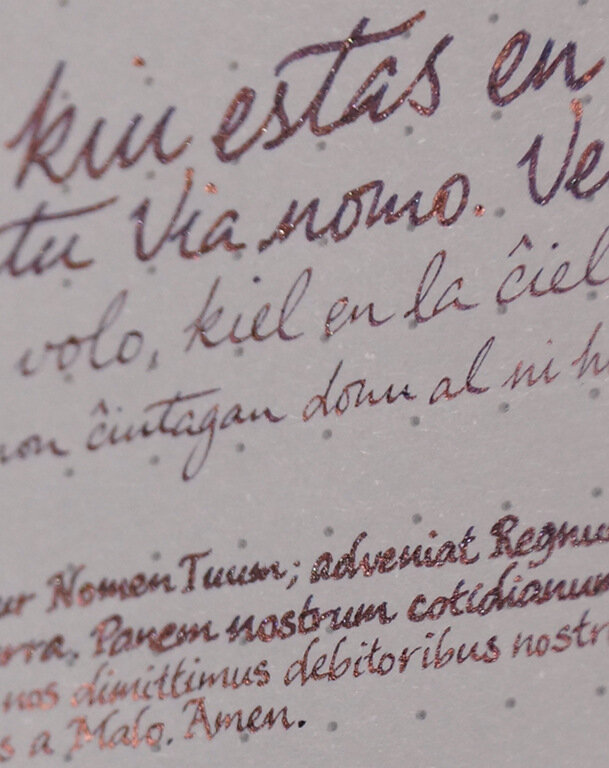 kiu estas en
tu Via nomo. Ve
volo, kiel en la ĉiel
non ĉiutagan donu al ni h
ur Nomen Tuum; adveniat Regnu
rra. Panem nostrum cotidianum
nos dimittimus debitoribus nostr
s a Malo. Amen.